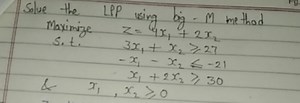 Solve the LPP using big - M method
Maximize Z = 4x₁ + 2x₂
S.t. 3x₁ + x₂ ≥ 27
-x₁ - x₂ ≤ -21
x₁ + 2x₂ ≥ 30
& x₁, x₂ ≥ 0